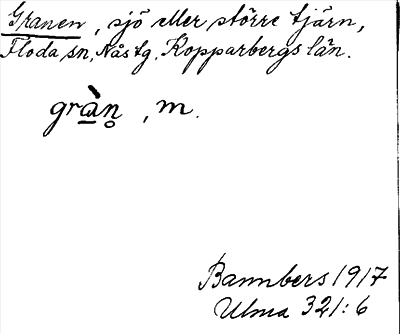 Granen, sjö eller större tjärn,
Floda sn, Nås tg, Kopparbergs län.
gràn̥, m.
Bannbers 1917
Ulma 321:6